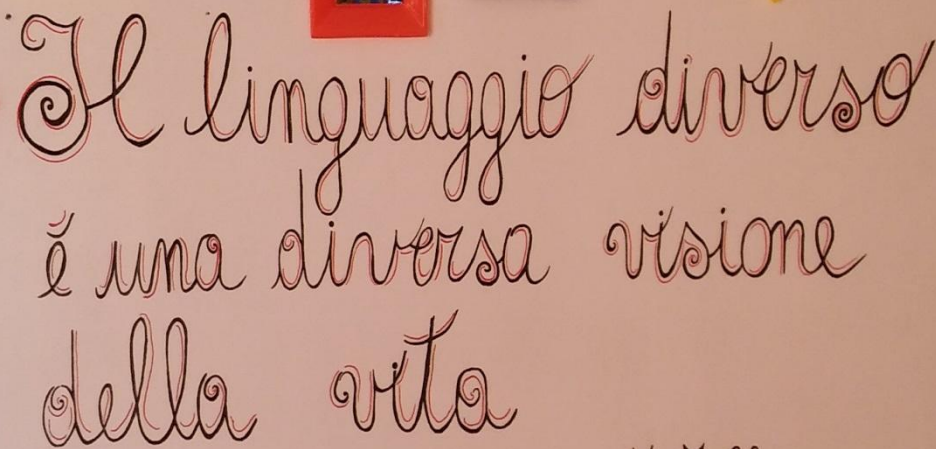 Il linguaggio diverso
è una diversa visione
della vita